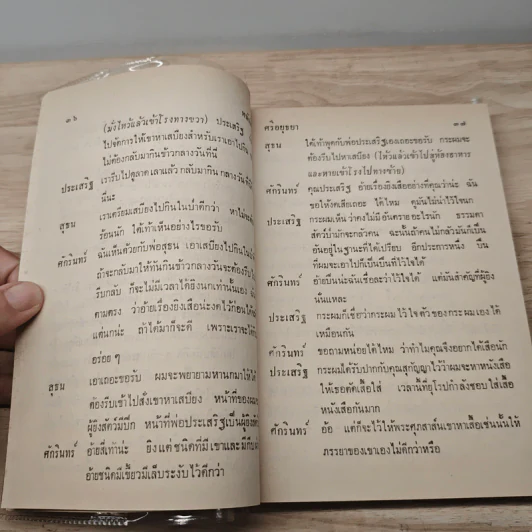 ๓๖
(นั่งไหว้แล้วเข้าโรงทางขวา) ประเสริฐ
ไปจัดการให้เขาหาเสบียงสำหรับเราเอาไปกิน
ไม่ต้องกลับมากินข้าวกลางวันที่นี่
ประเสริฐ เรารีบไปดูลาดเลาแล้ว กลับมากิน กลางวัน
นี่นะ
สุธน เราเตรียมเสบียงไปกินในป่าดีกว่า หาไม่
ร้อนนัก ใต้เท้าเห็นอย่างไรขอรับ
ศักรินทร์ ฉันเห็นด้วยกับพ่อสุธน เอาเสบียงไปกินใน
ถ้าจะกลับมาให้ทันกินข้าวกลางวันจะต้อง
รีบกลับ ก็จะไม่มีเวลาได้ยิงนกเท่านั้นเอง
ตามตรง ว่าอ้ายเรื่องยิงเสือน่ะงดไว้ก่อน
แต่นกน่ะ ถ้าได้มาก็จะดี เพราะเราจะได้
อร่อย ๆ
สุธน เอาเถอะขอรับ ผมจะพยายามหานกมาให้ได้
ต้องรีบเข้าไปสั่งเขาหาเสบียง หน้าที่ของผม
ผู้ยิงสัตว์มีปีก หน้าที่พ่อประเสริฐเป็นผู้ยิงสัตว์
ศักรินทร์ อ้ายสี่เท้าน่ะ ยิงแต่ชนิดที่มีเขาและมีกีบ
อ้ายชนิดมีเขี้ยวมีเล็บระงับไว้ดีกว่า
ศรีอยุธยา ๓๗
สุธน ใต้เท้าพูดกับพ่อประเสริฐเองเถอะขอรับ กระผมจะ
ต้องรีบไปหาเสบียง (ไหว้แล้วเข้าไปสู่ห้องอาหาร
และหายเข้าโรงไปทางซ้าย)
ศักรินทร์ คุณประเสริฐ อ้ายเรื่องยิงเสืออย่างที่คุณว่าน่ะ ฉัน
ขอให้งดเสียเถอะ ได้ไหม คุมันไม่น่าไว้ใจนา
ประเสริฐ กระผมเห็นว่าคงไม่มีอันตรายอะไรนัก ธรรมดา
สัตว์ป่ามักจะกลัวคน ฉะนั้นถ้าคนไม่กลัวมันก็เป็น
อันอยู่ในฐานะที่ได้เปรียบ อีกประการหนึ่ง ปืน
ที่ผมจะเอาไปก็เป็นปืนที่ไว้ใจได้
ศักรินทร์ อ้ายปืนน่ะฉันเชื่อละว่าไว้ใจได้ แต่มันสำคัญที่ผู้ยิง
นั่นแหละ
ประเสริฐ กระผมก็เชื่อว่ากระผมไว้ใจตัวของกระผมเองได้
เหมือนกัน
ศักรินทร์ ขอถามหน่อยได้ไหม ว่าทำไมคุณจึงอยากได้เสือนัก
ประเสริฐ กระผมได้รับปากกับคุณสุกัญญาไว้ว่าผมจะหาหนังเสือ
ให้เธอตัดเสื้อใส่ เวลานี้ที่ยุโรปกำลังชอบใส่เสื้อ
หนังเสือกันมาก
ศักรินทร์ อ้อ แต่ก็จะไว้ให้พระศุภสาส์นเขาหาเสื้อเช่นนั้นให้
ภรรยาของเขาเองไม่ดีกว่าหรือ